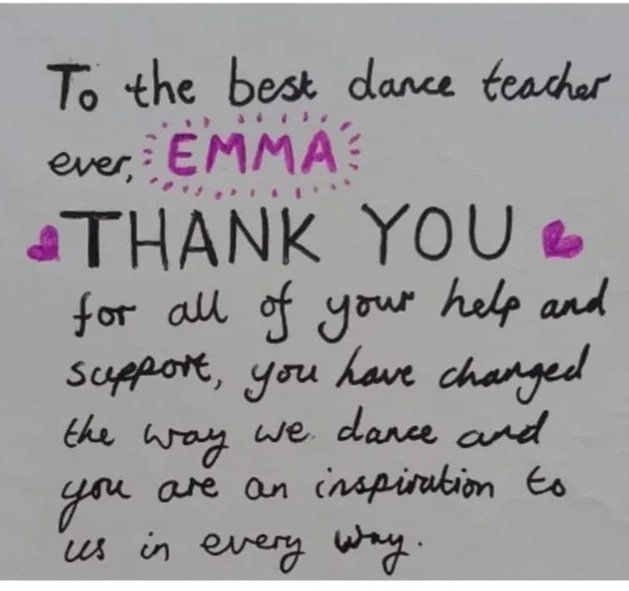 To the best dance teacher
ever, EMMA
THANK YOU
for all of your help and
support, you have changed
the way we dance and
you are an inspiration to
us in every way.